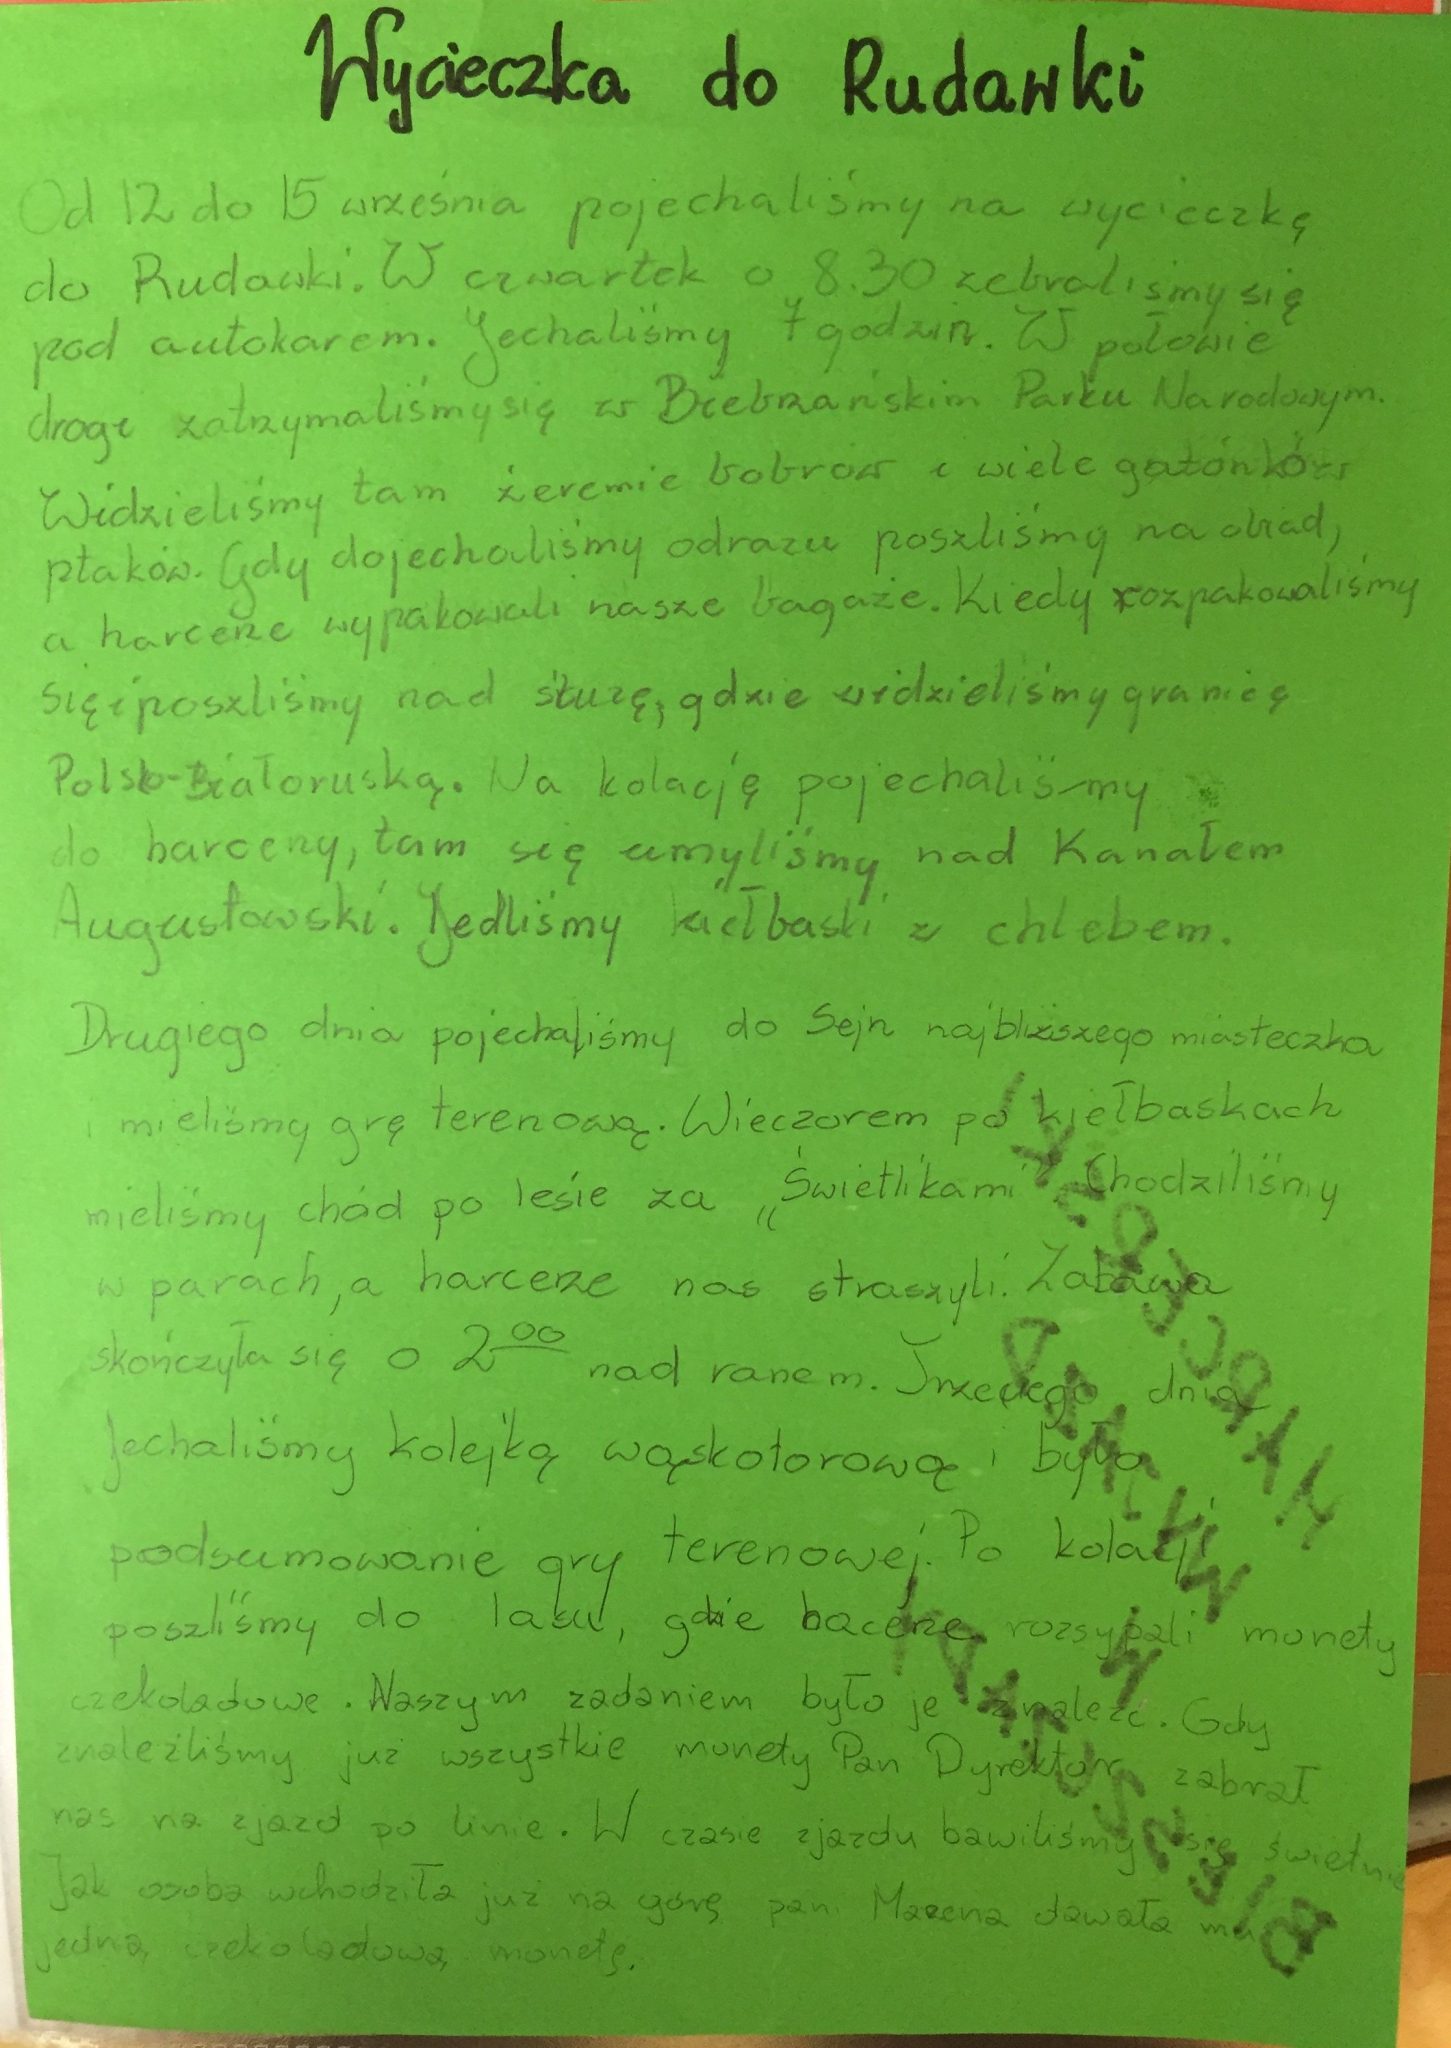 Wycieczka do Rudawki
Od 12 do 15 września pojechaliśmy na wycieczkę
do Rudawki. W czwartek o 8.30 zebraliśmy się
pod autokarem. Jechaliśmy 7 godzin. W połowie
drogi zatrzymaliśmy się w Biebrzańskim Parku Narodowym.
Widzieliśmy tam żeremie bobrów i wiele gatónków
ptaków. Gdy dojechaliśmy odrazu poszliśmy na obiad,
a harceże wypakowali nasze bagaże. Kiedy rozpakowaliśmy
się i poszliśmy nad śluzę, gdzie widzieliśmy granicę
Polsko-Białoruską. Na kolację pojechaliśmy
do harceży, tam się umyliśmy nad Kanałem
Augustowski. Jedliśmy kiełbaski z chlebem.
Drugiego dnia pojechaliśmy do Sejn najbliższego miasteczka
i mieliśmy grę terenową. Wieczorem po kiełbaskach
mieliśmy chód po lesie za „Świetlikami" Chodziliśmy
w parach, a harceże nas straszyli. Zabawa
skończyła się o 2⁰⁰ nad ranem. Trzeciego dnia
Jechaliśmy kolejką wąskotorową i było
podsumowanie gry terenowej. Po kolacji
poszliśmy do lasu, gdzie rozsypali monety
czekoladowe. Naszym zadaniem było je znaleźć. Gdy
znaleźliśmy już wszystkie monety Pan Dyrektor zabrał
nas na zjazd po linie. W czasie zjazdu bawiliśmy się świetnie
Jak osoba wchodziła już na górę pani Marzena dawała mu
jedną czekoladową monetę.